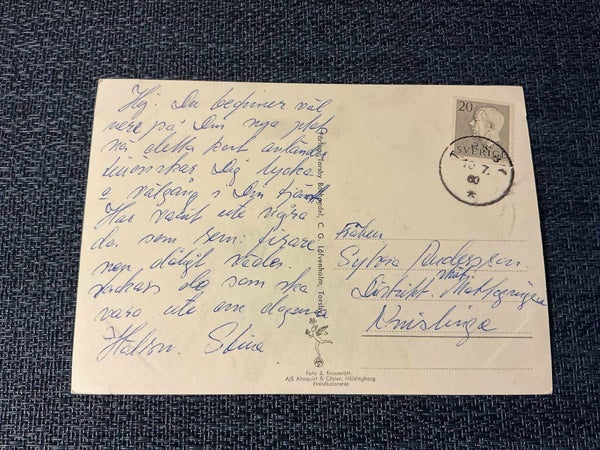 Hej. Du beginner väl
vere på Din nya plats
nä detta kort anländer
önskar Dig lycka
o välgång i Din tjänst
Har varit ute några
da. som sem. firare
men dåligt väder.
stackars dig som ska
vara ute om dagarna
Hälsn. Stina
Förlag: Torsby Bokhandel, C. G. Löfvenholm, Torsby
Foto & Ensamrätt:
A/B Almquist & Cöster, Hälsingborg
Handkolorerat
20
SVERIGE
7.
60
Fröken
Sylvia Andersson
Distrikt
Knislinge